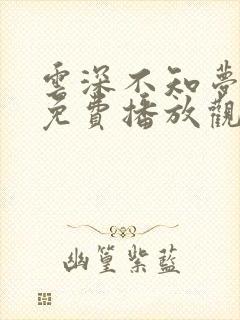 雲深不知夢
免費播放觀
幽篁紫藍